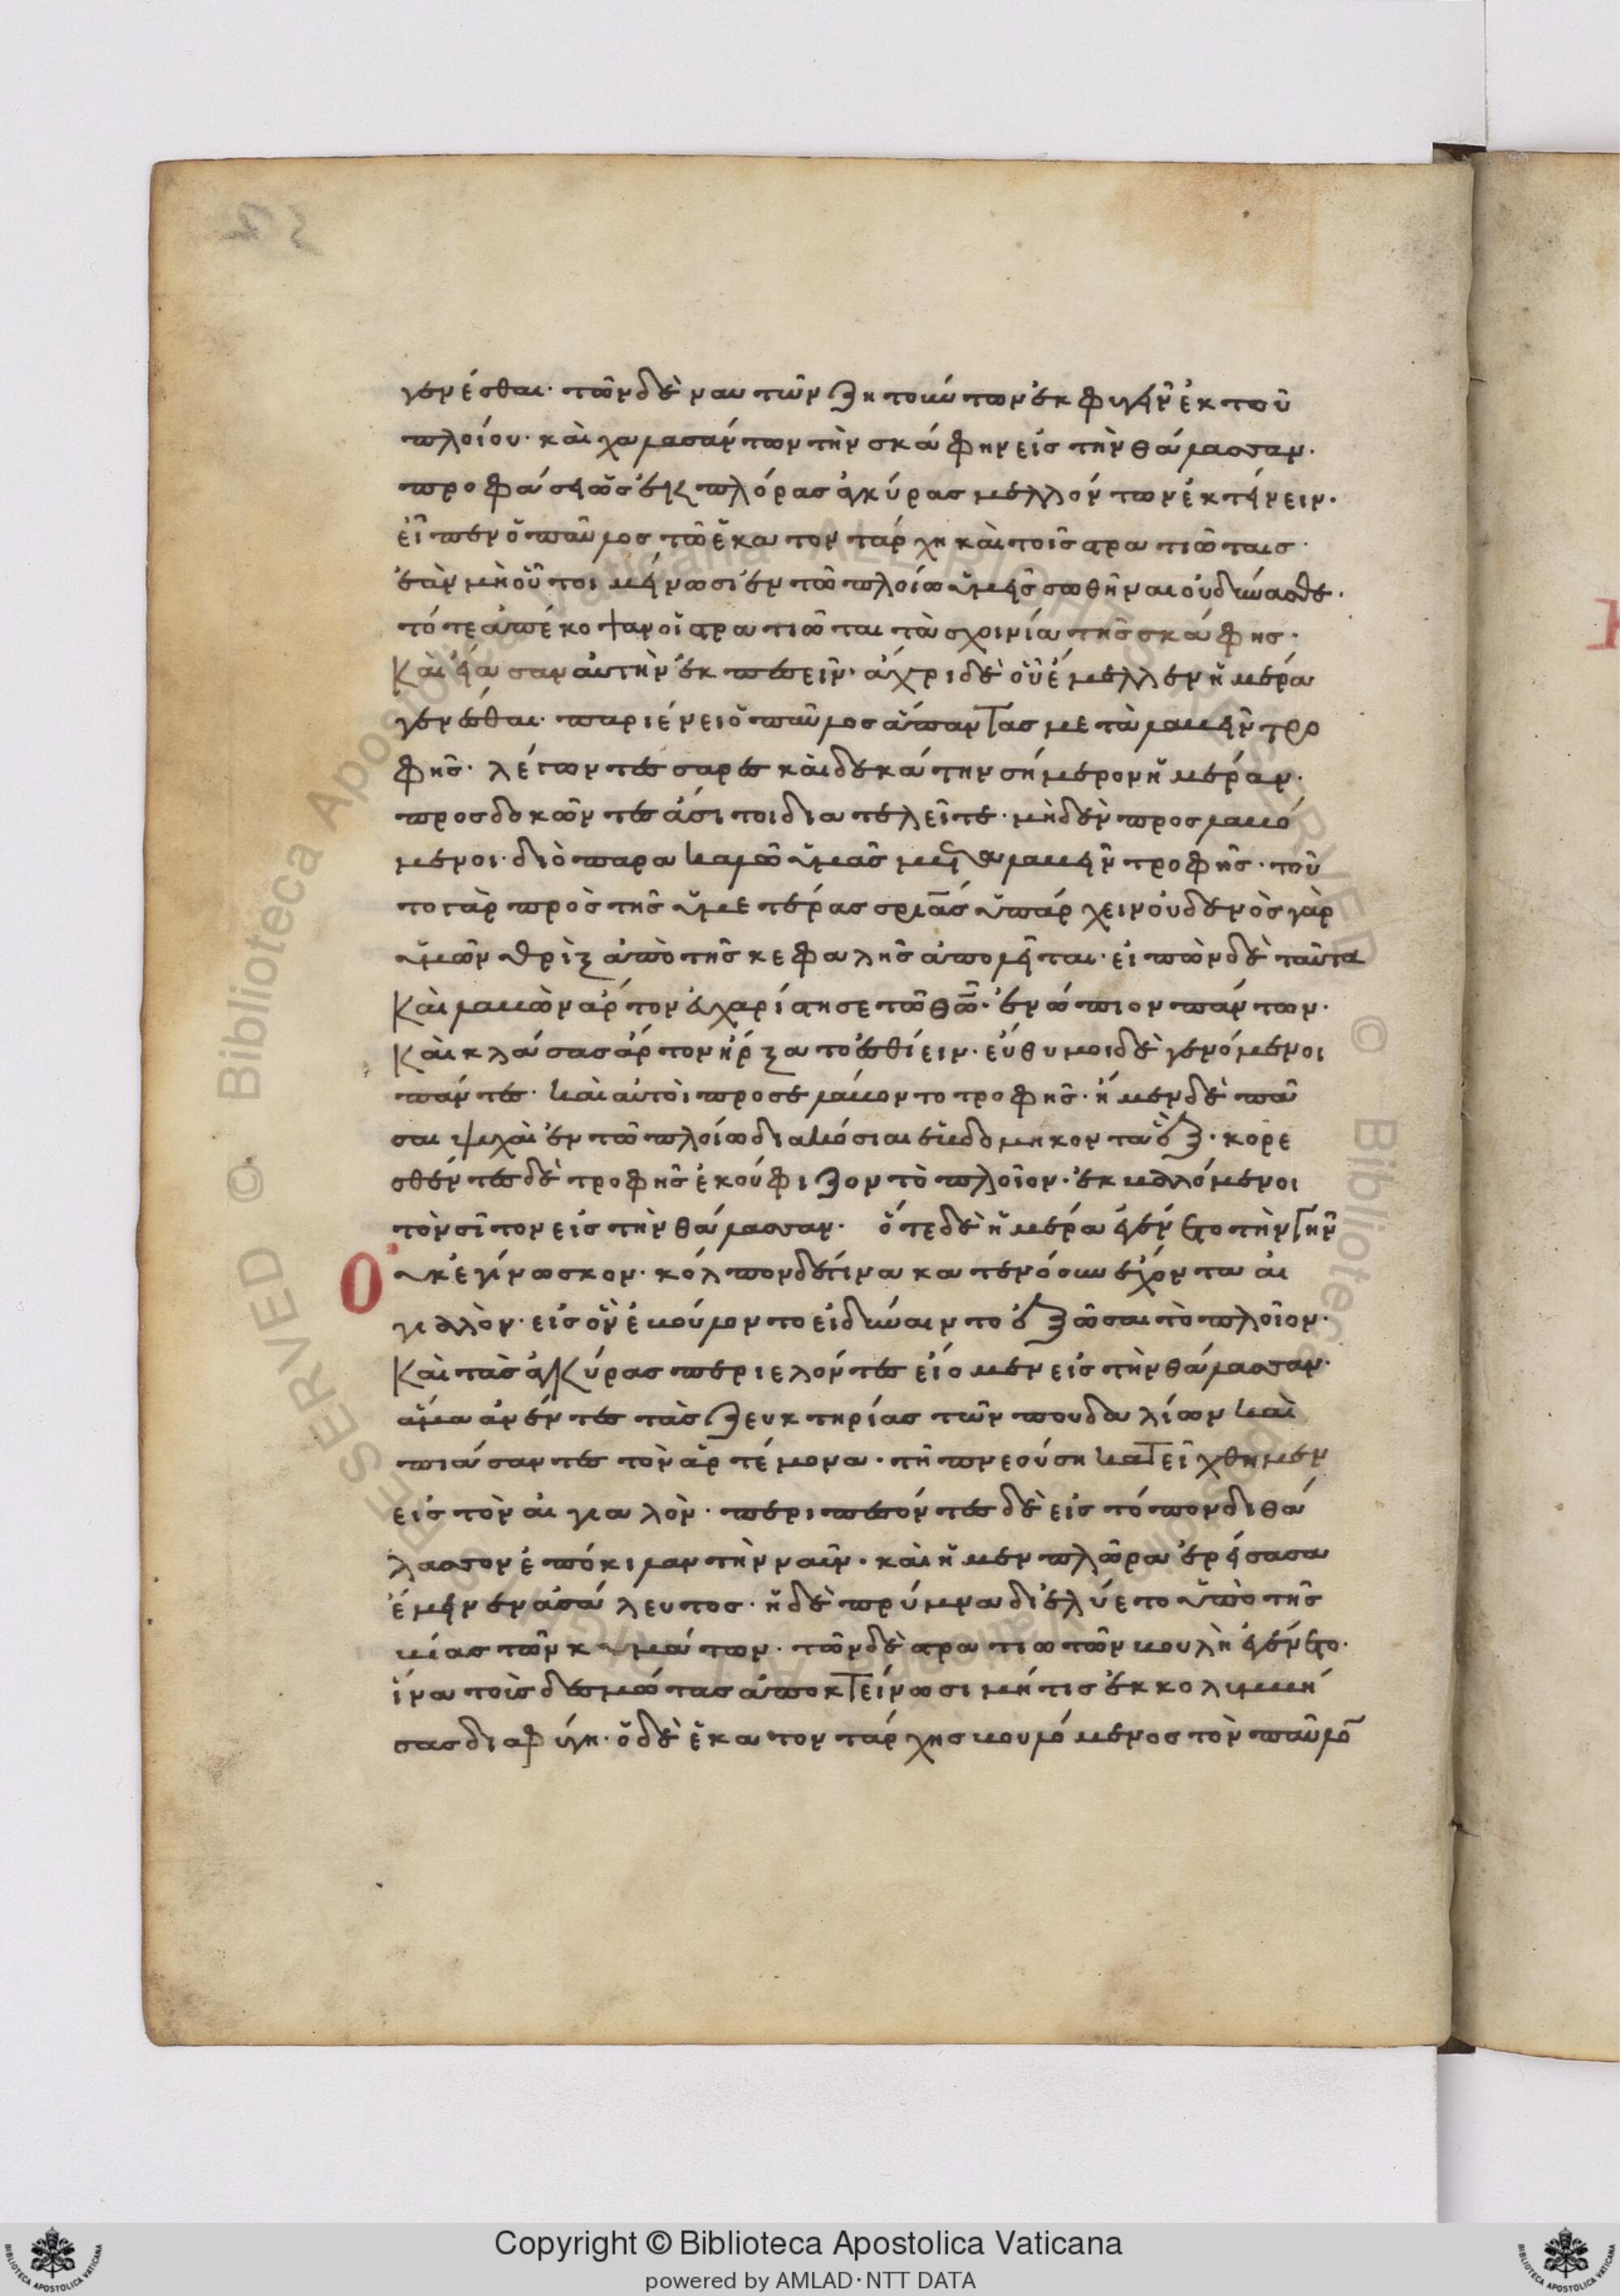 γενέσθαι· τῶν δὲ ναυτῶν ζητούντων ἐκφυγεῖν ἐκ τοῦ
πλοίου· καὶ χαλασάντων τὴν σκάφην εἰς τὴν θάλασσαν·
προφάσει ὡς ἐκ πλόρας ἀγκύρας μελλόντων ἐκτείνειν·
εἶπεν ὁ παῦλος τῶ ἑκατοντάρχη καὶ τοῖς στρατιώταις·
ἐὰν μὴ οὗτοι μείνωσι ἐν τῶ πλοίω ὑμεῖς σωθῆναι οὐ δύνασθε·
τότε ἀπέκοψαν οἱ στρατιῶται τὰ σχοινία τῆς σκάφης·
Καὶ εἴασαν αὐτὴν ἐκπεσεῖν· ἄχρι δὲ οὗ ἔμελλεν ἡμέρα
γενέσθαι· παριένει ὁ παῦλος ἅπαντας μεταλαβεῖν τρο
φῆς· λέγων τεσσαρεσκαιδεκάτην σήμερον ἡμέραν·
προσδοκῶντες ἄσιτοι διατελεῖτε· μηδὲν προσλαβό
μενοι· διὸ παρακαλῶ ὑμᾶς μεταλαβεῖν τροφῆς· τοῦ
το γὰρ πρὸς τῆς ὑμετέρας σρίας ὑπάρχειν οὐδενὸς γὰρ
ὑμῶν θρὶξ ἀπὸ τῆς κεφαλῆς ἀπολεῖται· εἰπὼν δὲ ταῦτα
Καὶ λαβὼν ἄρτον εὐχαρίστησε τῶ θῶ· ἐνώπιον πάντων·
Καὶ κλάσας ἄρτον ἤρξατο ἐσθίειν· εὔθυμοι δὲ γενόμενοι
πάντες· καὶ αὐτοὶ προσελάβοντο τροφῆς· ἤμεν δὲ πᾶ
σαι ψυχαὶ ἐν τῶ πλοίω διακόσιαι ἑβδομηκοντα ἕξ· κορε
σθέντες δὲ τροφῆς ἐκούφιζον τὸ πλοῖον· ἐκβαλλόμενοι
τὸν σῖτον εἰς τὴν θάλασσαν· ὅτε δὲ ἡμέρα ἐγένετο τὴν γῆν
Οὐκ ἐγίνωσκον· κόλπον δέ τινα κατενόουν ἔχοντα αἰ
γιαλὸν· εἰς ὃν ἐβούλοντο εἰ δύναιντο ἐξῶσαι τὸ πλοῖον·
Καὶ τὰς ἀγκύρας περιελόντες εἴομεν εἰς τὴν θάλασσαν·
ἅμα ἀνέντες τὰς ζευκτηρίας τῶν πουδαλίων καὶ
πιάσαντες τὸν ἀρτέμονα· τῆ πνεούση κατείχθημεν
εἰς τὸν αἰγιαλὸν· περιπεσόντες δὲ εἰς τόπον διθά
λασσον ἐπόκιλαν τὴν ναῦν· καὶ ἡ μὲν πλῶρα ἐρείσασα
ἔμεινεν ἀσάλευτος· ἡ δὲ πρύμνα διελύετο ὑπὸ τῆς
βίας τῶν κυμάτων· τῶν δὲ στρατιωτῶν βουλὴ ἐγένετο·
ἵνα τοὶς δεσμώτας ἀποκτείνωσι μήτις ἐκκολυμβή
σας διαφύγη· ὁ δὲ ἑκατοντάρχης βουλόμενος τὸν παῦλο